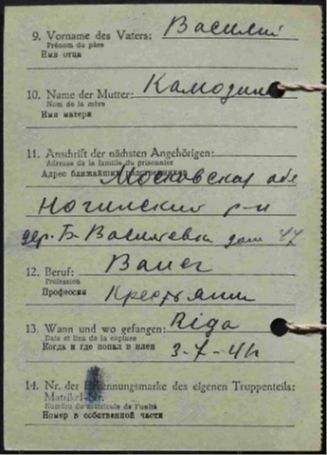 9. Vorname des Vaters: Василий
Prénom du père
Имя отца
10. Name der Mutter:
Nom de la mère
Имя матери
11. Anschrift der nächsten Angehörigen:
Adresse de la famille du prisonnier
Адрес ближайших Московская обл
Ногинский р-н
дер. Б-Василевка дом 47
12. Beruf: Bauer
Profession
Профессия Крестьянин
13. Wann und wo gefangen: Riga
Date et lieu de la capture
Когда и где попал в плен 3-7-41
14. Nr. der Erkennungsmarke des eigenen Truppenteils:
Matrikel-Nr.
Numéro du matricule de l'unité
Номер в собственной части